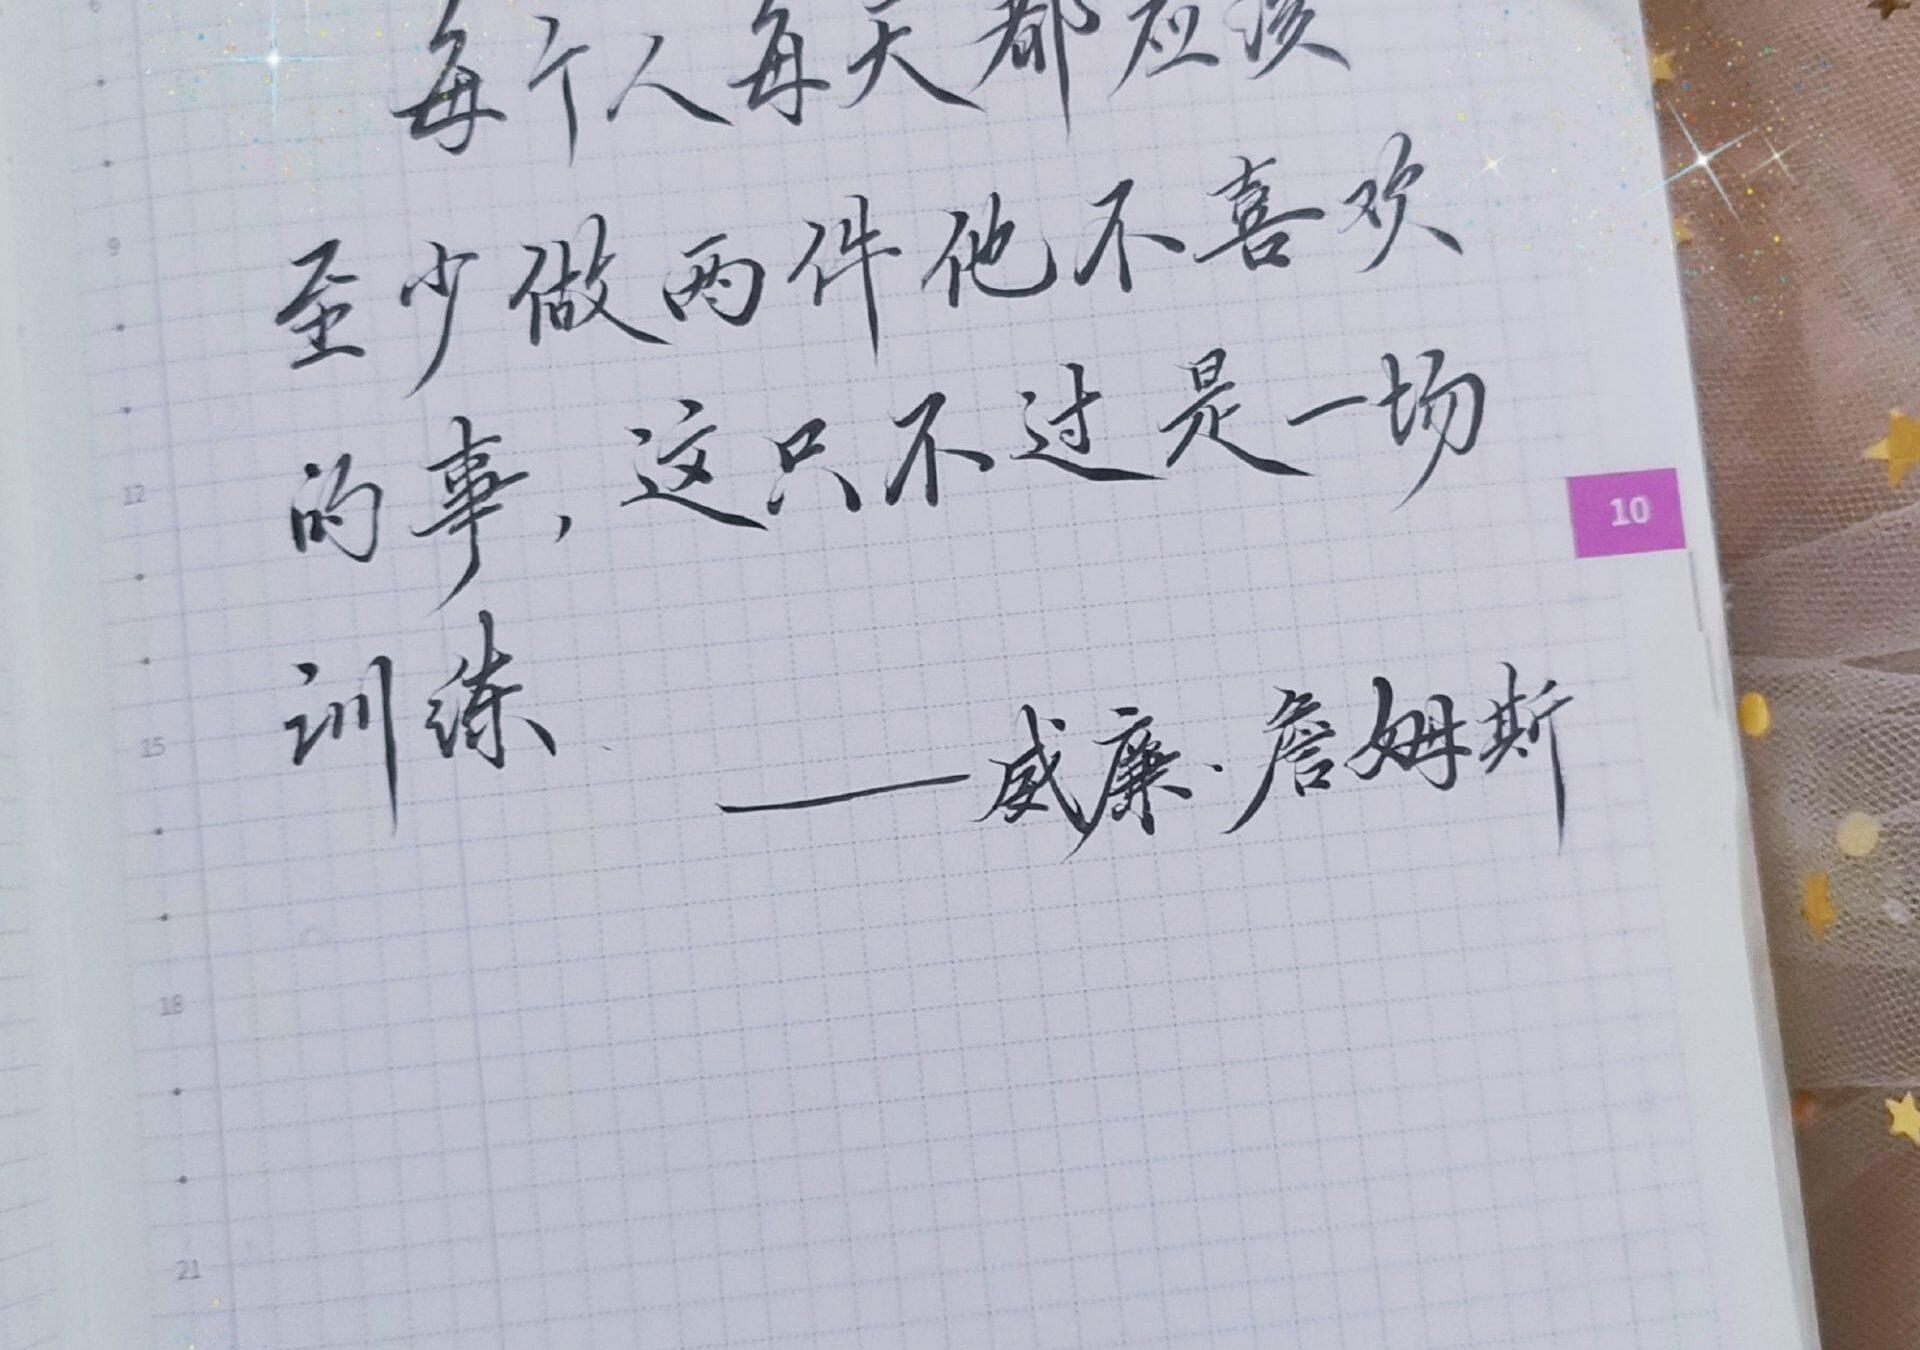 每个人每天都应该
至少做两件他不喜欢
的事，这只不过是一场
训练
——威廉·詹姆斯
10
6
9
12
15
18
21